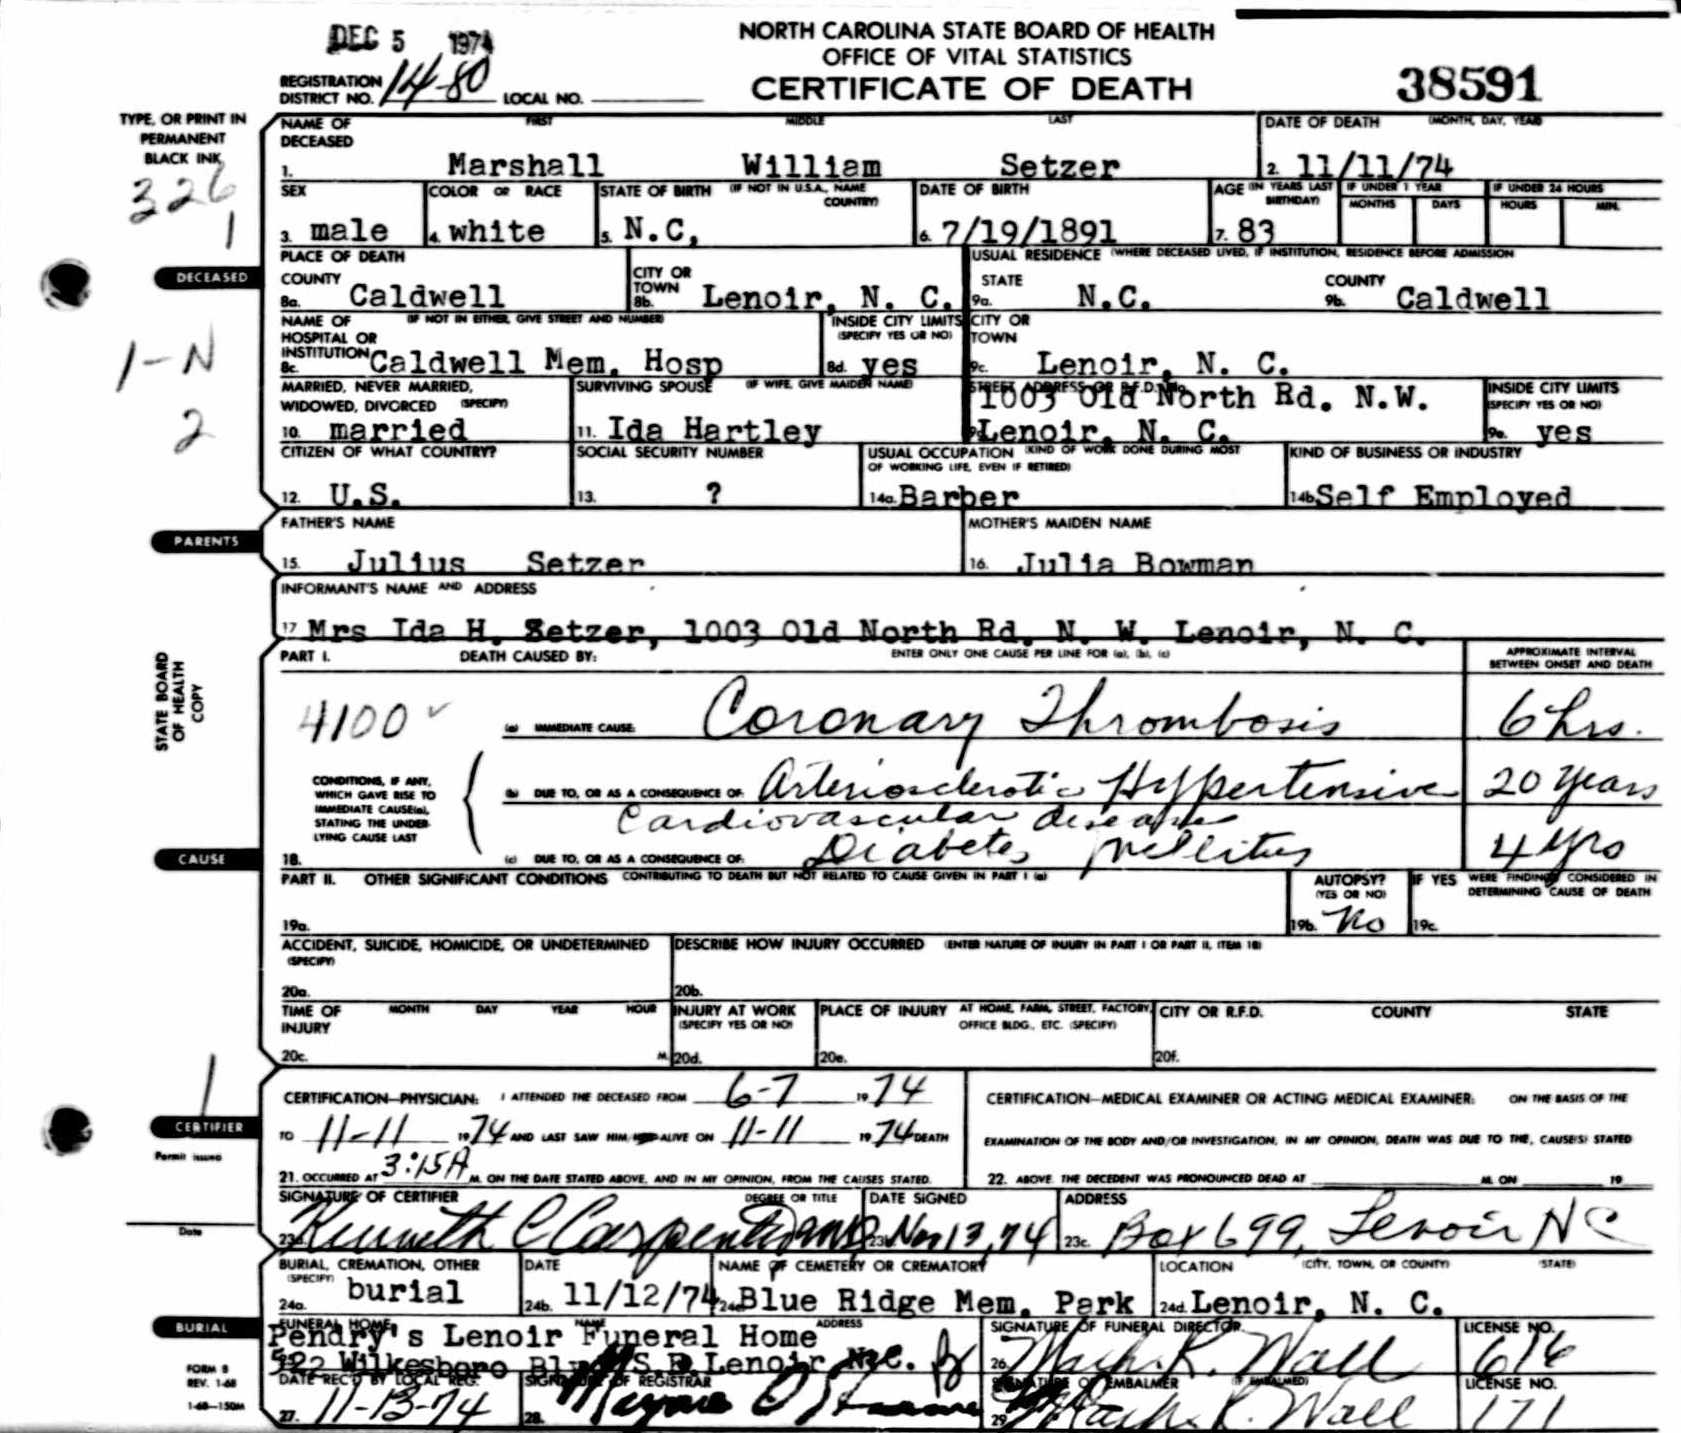 DEC 5 1974
NORTH CAROLINA STATE BOARD OF HEALTH
OFFICE OF VITAL STATISTICS
CERTIFICATE OF DEATH
38591
REGISTRATION DISTRICT NO. 14-80 LOCAL NO.
TYPE, OR PRINT IN
PERMANENT
BLACK INK
326
1
NAME OF DECEASED FIRST MIDDLE LAST
1. Marshall William Setzer
DATE OF DEATH (MONTH, DAY, YEAR)
2. 11/11/74
SEX
3. male
COLOR OR RACE
4. white
STATE OF BIRTH (IF NOT IN U.S.A., NAME COUNTRY)
5. N.C,
DATE OF BIRTH
6. 7/19/1891
AGE (IN YEARS LAST BIRTHDAY)
7. 83
IF UNDER 1 YEAR
MONTHS DAYS
IF UNDER 24 HOURS
HOURS MIN.
DECEASED
PLACE OF DEATH
COUNTY
8a. Caldwell
CITY OR TOWN
8b. Lenoir, N. C.
USUAL RESIDENCE (WHERE DECEASED LIVED, IF INSTITUTION, RESIDENCE BEFORE ADMISSION
STATE
9a. N.C.
COUNTY
9b. Caldwell
1-N
2
NAME OF HOSPITAL OR INSTITUTION (IF NOT IN EITHER, GIVE STREET AND NUMBER)
8c. Caldwell Mem. Hosp
INSIDE CITY LIMITS (SPECIFY YES OR NO)
8d. yes
CITY OR TOWN
9c. Lenoir, N. C.
MARRIED, NEVER MARRIED, WIDOWED, DIVORCED (SPECIFY)
10. married
SURVIVING SPOUSE (IF WIFE, GIVE MAIDEN NAME)
11. Ida Hartley
STREET ADDRESS OR R.F.D. No.
1003 Old North Rd. N.W.
Lenoir, N. C.
INSIDE CITY LIMITS (SPECIFY YES OR NO)
9e. yes
CITIZEN OF WHAT COUNTRY?
12. U.S.
SOCIAL SECURITY NUMBER
13. ?
USUAL OCCUPATION (KIND OF WORK DONE DURING MOST OF WORKING LIFE, EVEN IF RETIRED)
14a. Barber
KIND OF BUSINESS OR INDUSTRY
14b. Self Employed
PARENTS
FATHER'S NAME
15. Julius Setzer
MOTHER'S MAIDEN NAME
16. Julia Bowman
INFORMANT'S NAME AND ADDRESS
17 Mrs Ida H. Setzer, 1003 Old North Rd. N. W. Lenoir, N. C.
STATE BOARD
OF HEALTH
COPY
PART I. DEATH CAUSED BY: ENTER ONLY ONE CAUSE PER LINE FOR (a), (b), (c)
APPROXIMATE INTERVAL BETWEEN ONSET AND DEATH
4100
(a) IMMEDIATE CAUSE: Coronary Thrombosis 6 hrs.
CONDITIONS, IF ANY,
WHICH GAVE RISE TO
IMMEDIATE CAUSE(a),
STATING THE UNDER-
LYING CAUSE LAST
(b) DUE TO, OR AS A CONSEQUENCE OF: Arteriosclerotic Hypertensive 20 years
Cardiovascular disease
CAUSE
18. (c) DUE TO, OR AS A CONSEQUENCE OF: Diabetes Mellitus 4 yrs
PART II. OTHER SIGNIFICANT CONDITIONS CONTRIBUTING TO DEATH BUT NOT RELATED TO CAUSE GIVEN IN PART I (a)
19a.
AUTOPSY? (YES OR NO)
19b. No
IF YES WERE FINDINGS CONSIDERED IN DETERMINING CAUSE OF DEATH
19c.
ACCIDENT, SUICIDE, HOMICIDE, OR UNDETERMINED (SPECIFY)
20a.
DESCRIBE HOW INJURY OCCURRED (ENTER NATURE OF INJURY IN PART I OR PART II, ITEM 18)
20b.
TIME OF INJURY MONTH DAY YEAR HOUR
20c. M.
INJURY AT WORK (SPECIFY YES OR NO)
20d.
PLACE OF INJURY AT HOME, FARM, STREET, FACTORY, OFFICE BLDG., ETC. (SPECIFY)
20e.
CITY OR R.F.D. COUNTY STATE
20f.
1
CERTIFIER
Permit issued
Date
CERTIFICATION—PHYSICIAN: I ATTENDED THE DECEASED FROM 6-7 19 74
TO 11-11 19 74 AND LAST SAW HIM/HER ALIVE ON 11-11 19 74 DEATH
21. OCCURRED AT 3:15A M. ON THE DATE STATED ABOVE, AND IN MY OPINION, FROM THE CAUSES STATED.
CERTIFICATION—MEDICAL EXAMINER OR ACTING MEDICAL EXAMINER: ON THE BASIS OF THE
EXAMINATION OF THE BODY AND/OR INVESTIGATION, IN MY OPINION, DEATH WAS DUE TO THE, CAUSE(S) STATED
22. ABOVE. THE DECEDENT WAS PRONOUNCED DEAD AT M. ON 19
SIGNATURE OF CERTIFIER DEGREE OR TITLE
23a. Kenneth C Carpenter MD
DATE SIGNED
23b. Nov 13, 74
ADDRESS
23c. Box 699, Lenoir N C
BURIAL, CREMATION, OTHER (SPECIFY)
24a. burial
DATE
24b. 11/12/74
NAME OF CEMETERY OR CREMATORY
24c. Blue Ridge Mem. Park
LOCATION (CITY, TOWN, OR COUNTY) (STATE)
24d. Lenoir, N. C.
BURIAL
FUNERAL HOME NAME ADDRESS
Pendry's Lenoir Funeral Home
522 Wilkesboro Blvd S E Lenoir N.C.
SIGNATURE OF FUNERAL DIRECTOR
26. Mack R. Wall
LICENSE NO.
616
FORM 8
REV. 1-68
1-68—150M
DATE REC'D BY LOCAL REG.
27. 11-13-74
SIGNATURE OF REGISTRAR
28.
SIGNATURE OF EMBALMER (IF EMBALMED)
29. Mack R. Wall
LICENSE NO.
171